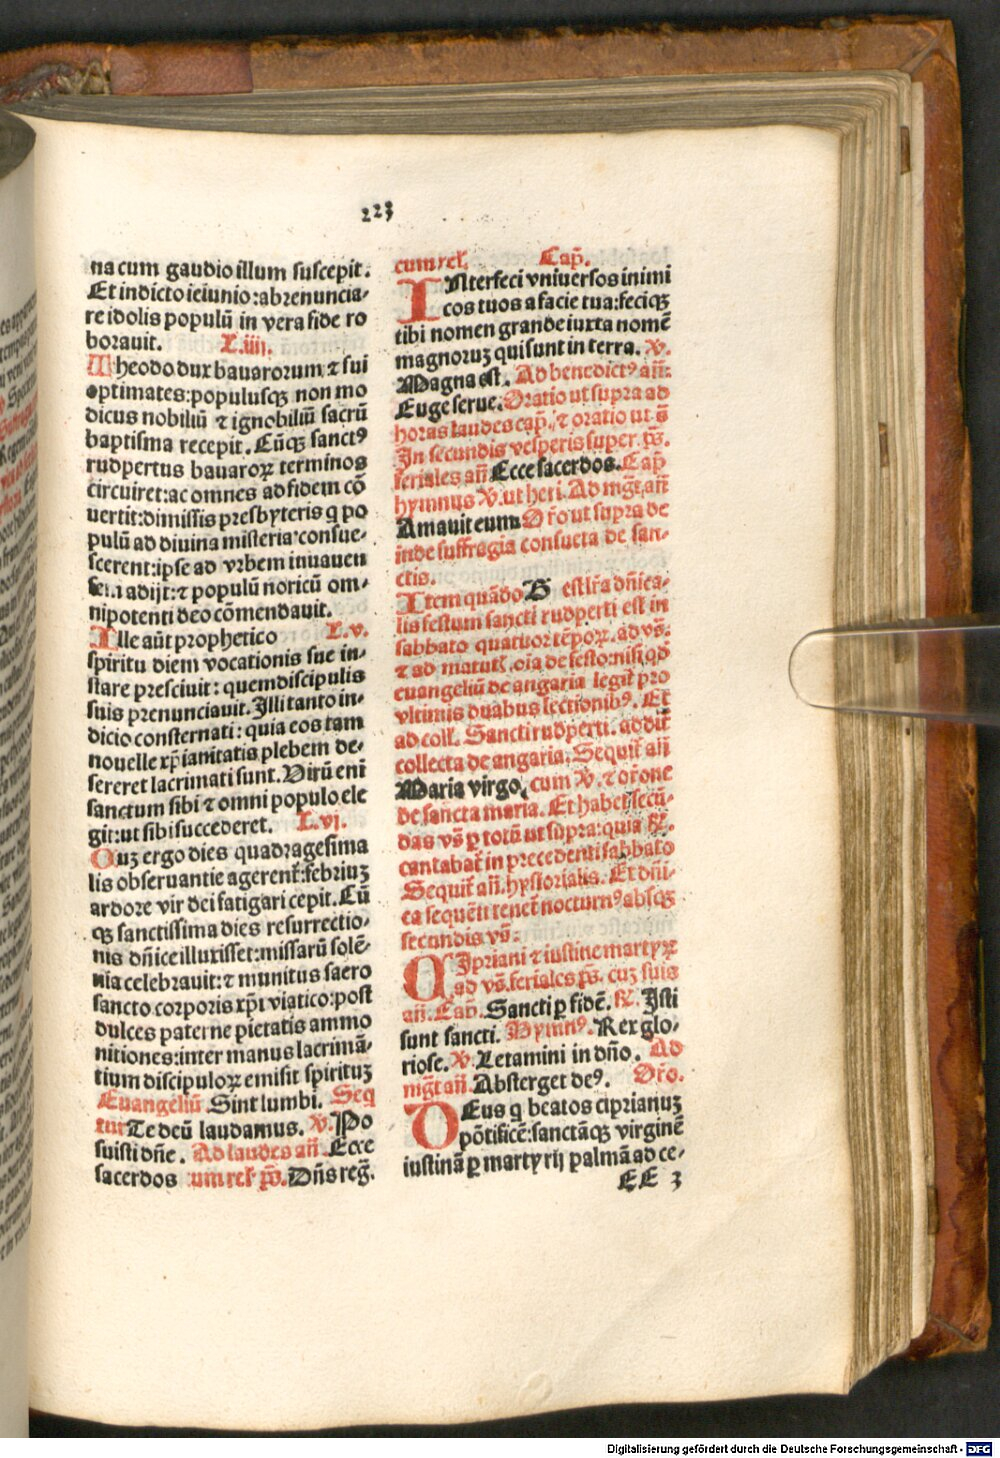 223
na cum gaudio illum suscepit.
Et indicto ieiunio: abrenuncia-
re idolis populū in vera fide ro
boravit. L.iiij.
Theodo dux bavarorum ⁊ sui
optimates: populusqꝫ non mo
dicus nobiliū ⁊ ignobiliū sacrū
baptisma recepit. Cūqꝫ sanctꝰ
rudpertus bavaroꝝ terminos
circuiret: ac omnes ad fidem cō
vertit: dimissis presbyteris q po
pulū ad divina misteria consue-
scerent: ipse ad vrbem iuuauen
sem adijt: ⁊ populū noricū om-
nipotenti deo cōmendauit.
Ille aūt prophetico L.v.
spiritu diem vocationis sue in-
stare presciuit: quem discipulis
suis prenunciauit. Illi tanto in-
dicio consternati: quia eos tam
nouelle xp̄ianitatis plebem de-
sereret lacrimati sunt. Virū eni
sanctum sibi ⁊ omni populo ele
git: ut sibi succederet. L.vj.
Cuꝫ ergo dies quadragesima
lis observantie agerent: febriuꝫ
ardore vir dei fatigari cepit. Cū
qꝫ sanctissima dies resurrectio-
nis dn̄ice illuxisset: missarū solē-
nia celebrauit: ⁊ munitus sacro
sancto corporis xp̄i viatico: post
dulces paterne pietatis ammo
nitiones: inter manus lacrimā-
tium discipuloꝝ emisit spirituꝫ
Euangeliū. Sint lumbi. Seq
tur Te deū laudamus. ℣. Po
suisti dn̄e. Ad laudes an̄. Ecce
sacerdos um rel' p̄s. Dn̄s reḡ.
cum rel'. Cap̄.
INterfeci vniversos inimi
cos tuos a facie tua: feciqꝫ
tibi nomen grande iuxta nomē
magnoruꝫ qui sunt in terra. ℣.
Magna est. Ad benedictꝰ an̄:
Euge serue. Oratio ut supra ad
horas laudes cap̄. ⁊ oratio ut s̄
In secundis vesperis super p̄s.
feriales an̄ Ecce sacerdos. Cap̄
hymnus ℣. ut heri. Ad mgt̄. an̄
Amauit eum. Or̄o ut supra de
inde suffragia consueta de san-
ctis.
Item quādo B est lr̄a dn̄ica-
lis festum sancti rudperti est in
sabbato quatuor tēpoꝝ. ad vs̄.
⁊ ad matut'. oīa de festo: nisi qd̄
euangeliū de angaria legit' pro
vltimis duabus lectionibꝰ. Et
ad coll'. Sancti rudperti. addit'
collecta de angaria. Sequit' an̄
Maria virgo. cum ℣. ⁊ or̄one
de sancta maria. Et habet secū-
das vs̄ p totū ut supra: quia ℟.
cantabat' in precedenti sabbato
Sequit' an̄. hystorialis. Et dn̄i-
ca sequēti tenet nocturnꝰ absqꝫ
secundis vs̄.
CIpriani ⁊ iustine martyꝝ
ad vs̄. feriales p̄s. cuꝫ suis
an̄. Cap̄. Sancti p fidē. ℟. Isti
sunt sancti. Hymnꝰ. Rex glo-
riose. ℣. Letamini in dn̄o. Ad
mgt̄ an̄. Absterget deꝰ. Or̄o.
DEus q beatos ciprianuꝫ
pōtificē: sanctāqꝫ virginē
iustinā p martyrij palmā ad ce-
EE 3
Digitalisierung gefördert durch die Deutsche Forschungsgemeinschaft - DFG